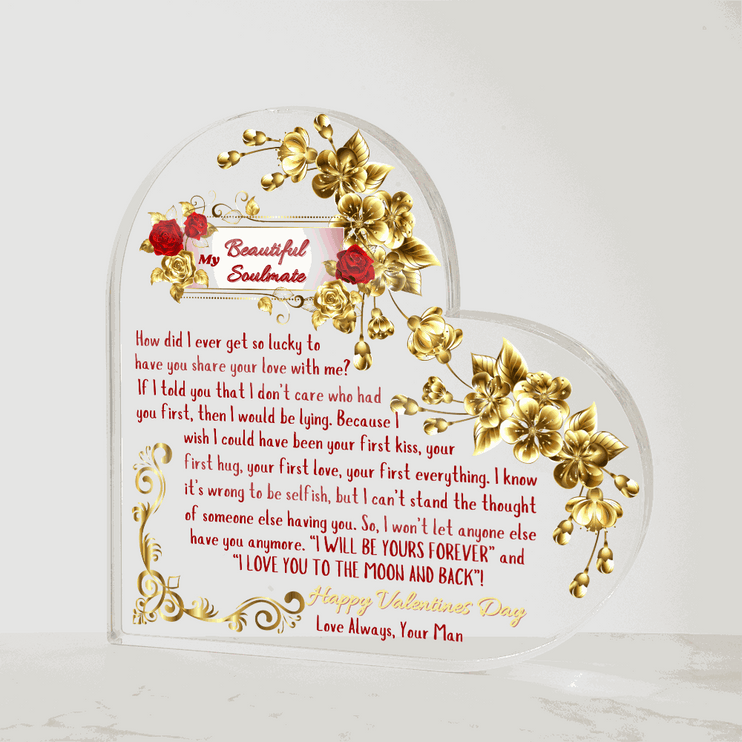 My
Beautiful
Soulmate
How did I ever get so lucky to
have you share your love with me?
If I told you that I don't care who had
you first, then I would be lying. Because I
wish I could have been your first kiss, your
first hug, your first love, your first everything. I know
it's wrong to be selfish, but I can't stand the thought
of someone else having you. So, I won't let anyone else
have you anymore. "I WILL BE YOURS FOREVER" and
"I LOVE YOU TO THE MOON AND BACK"!
Happy Valentines Day
Love Always, Your Man